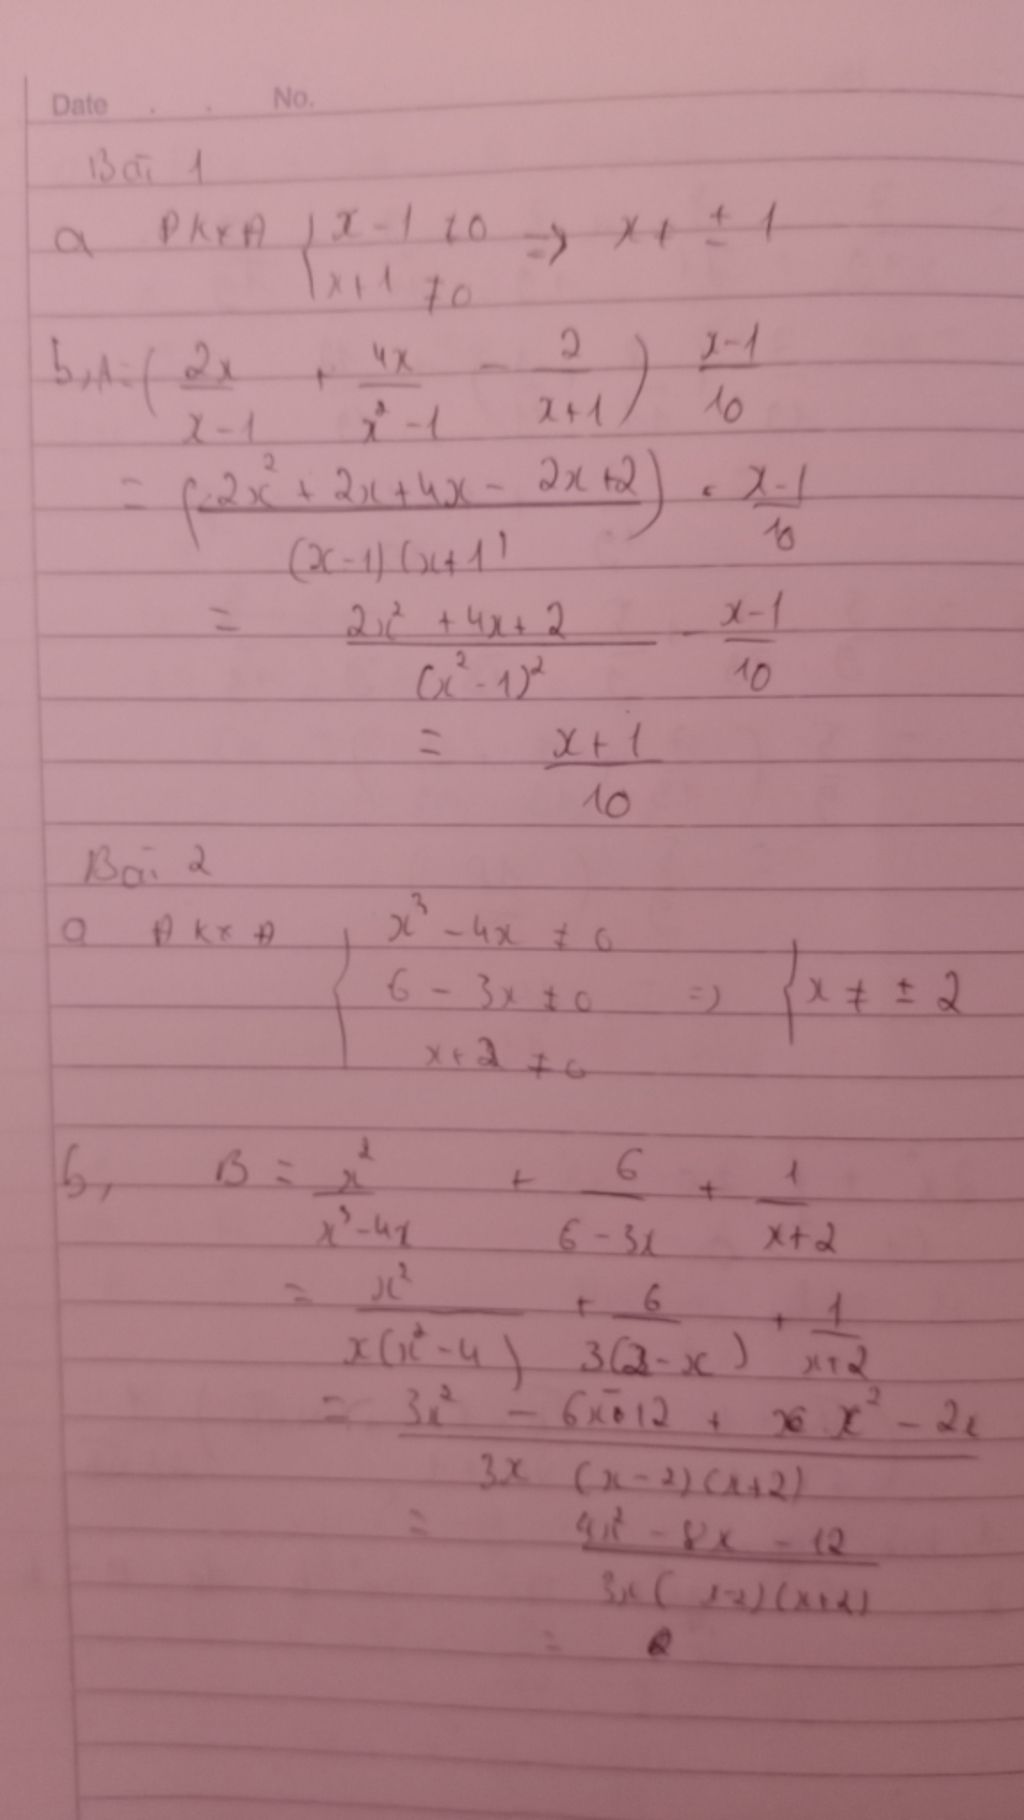 Date . . No.
Bài 1
a ĐKXĐ { x - 1 ≠ 0 => x ≠ ± 1
x + 1 ≠ 0
b, A = ( 2x/(x-1) + 4x/(x²-1) - 2/(x+1) ) (x-1)/10
= ( (2x² + 2x + 4x - 2x + 2)/((x-1)(x+1)) ) . (x-1)/10
= (2x² + 4x + 2)/((x²-1)²) - (x-1)/10
= (x+1)/10
Bài 2
a ĐKXĐ { x³ - 4x ≠ 0
6 - 3x ≠ 0 => { x ≠ ± 2
x + 2 ≠ 0
b, B = x²/(x³-4x) + 6/(6-3x) + 1/(x+2)
= x²/(x(x²-4)) + 6/(3(2-x)) + 1/(x+2)
= (3x² - 6x - 12 + x² - 2x)/(3x (x-2)(x+2))
= (4x² - 8x - 12)/(3x(x-2)(x+2))
=